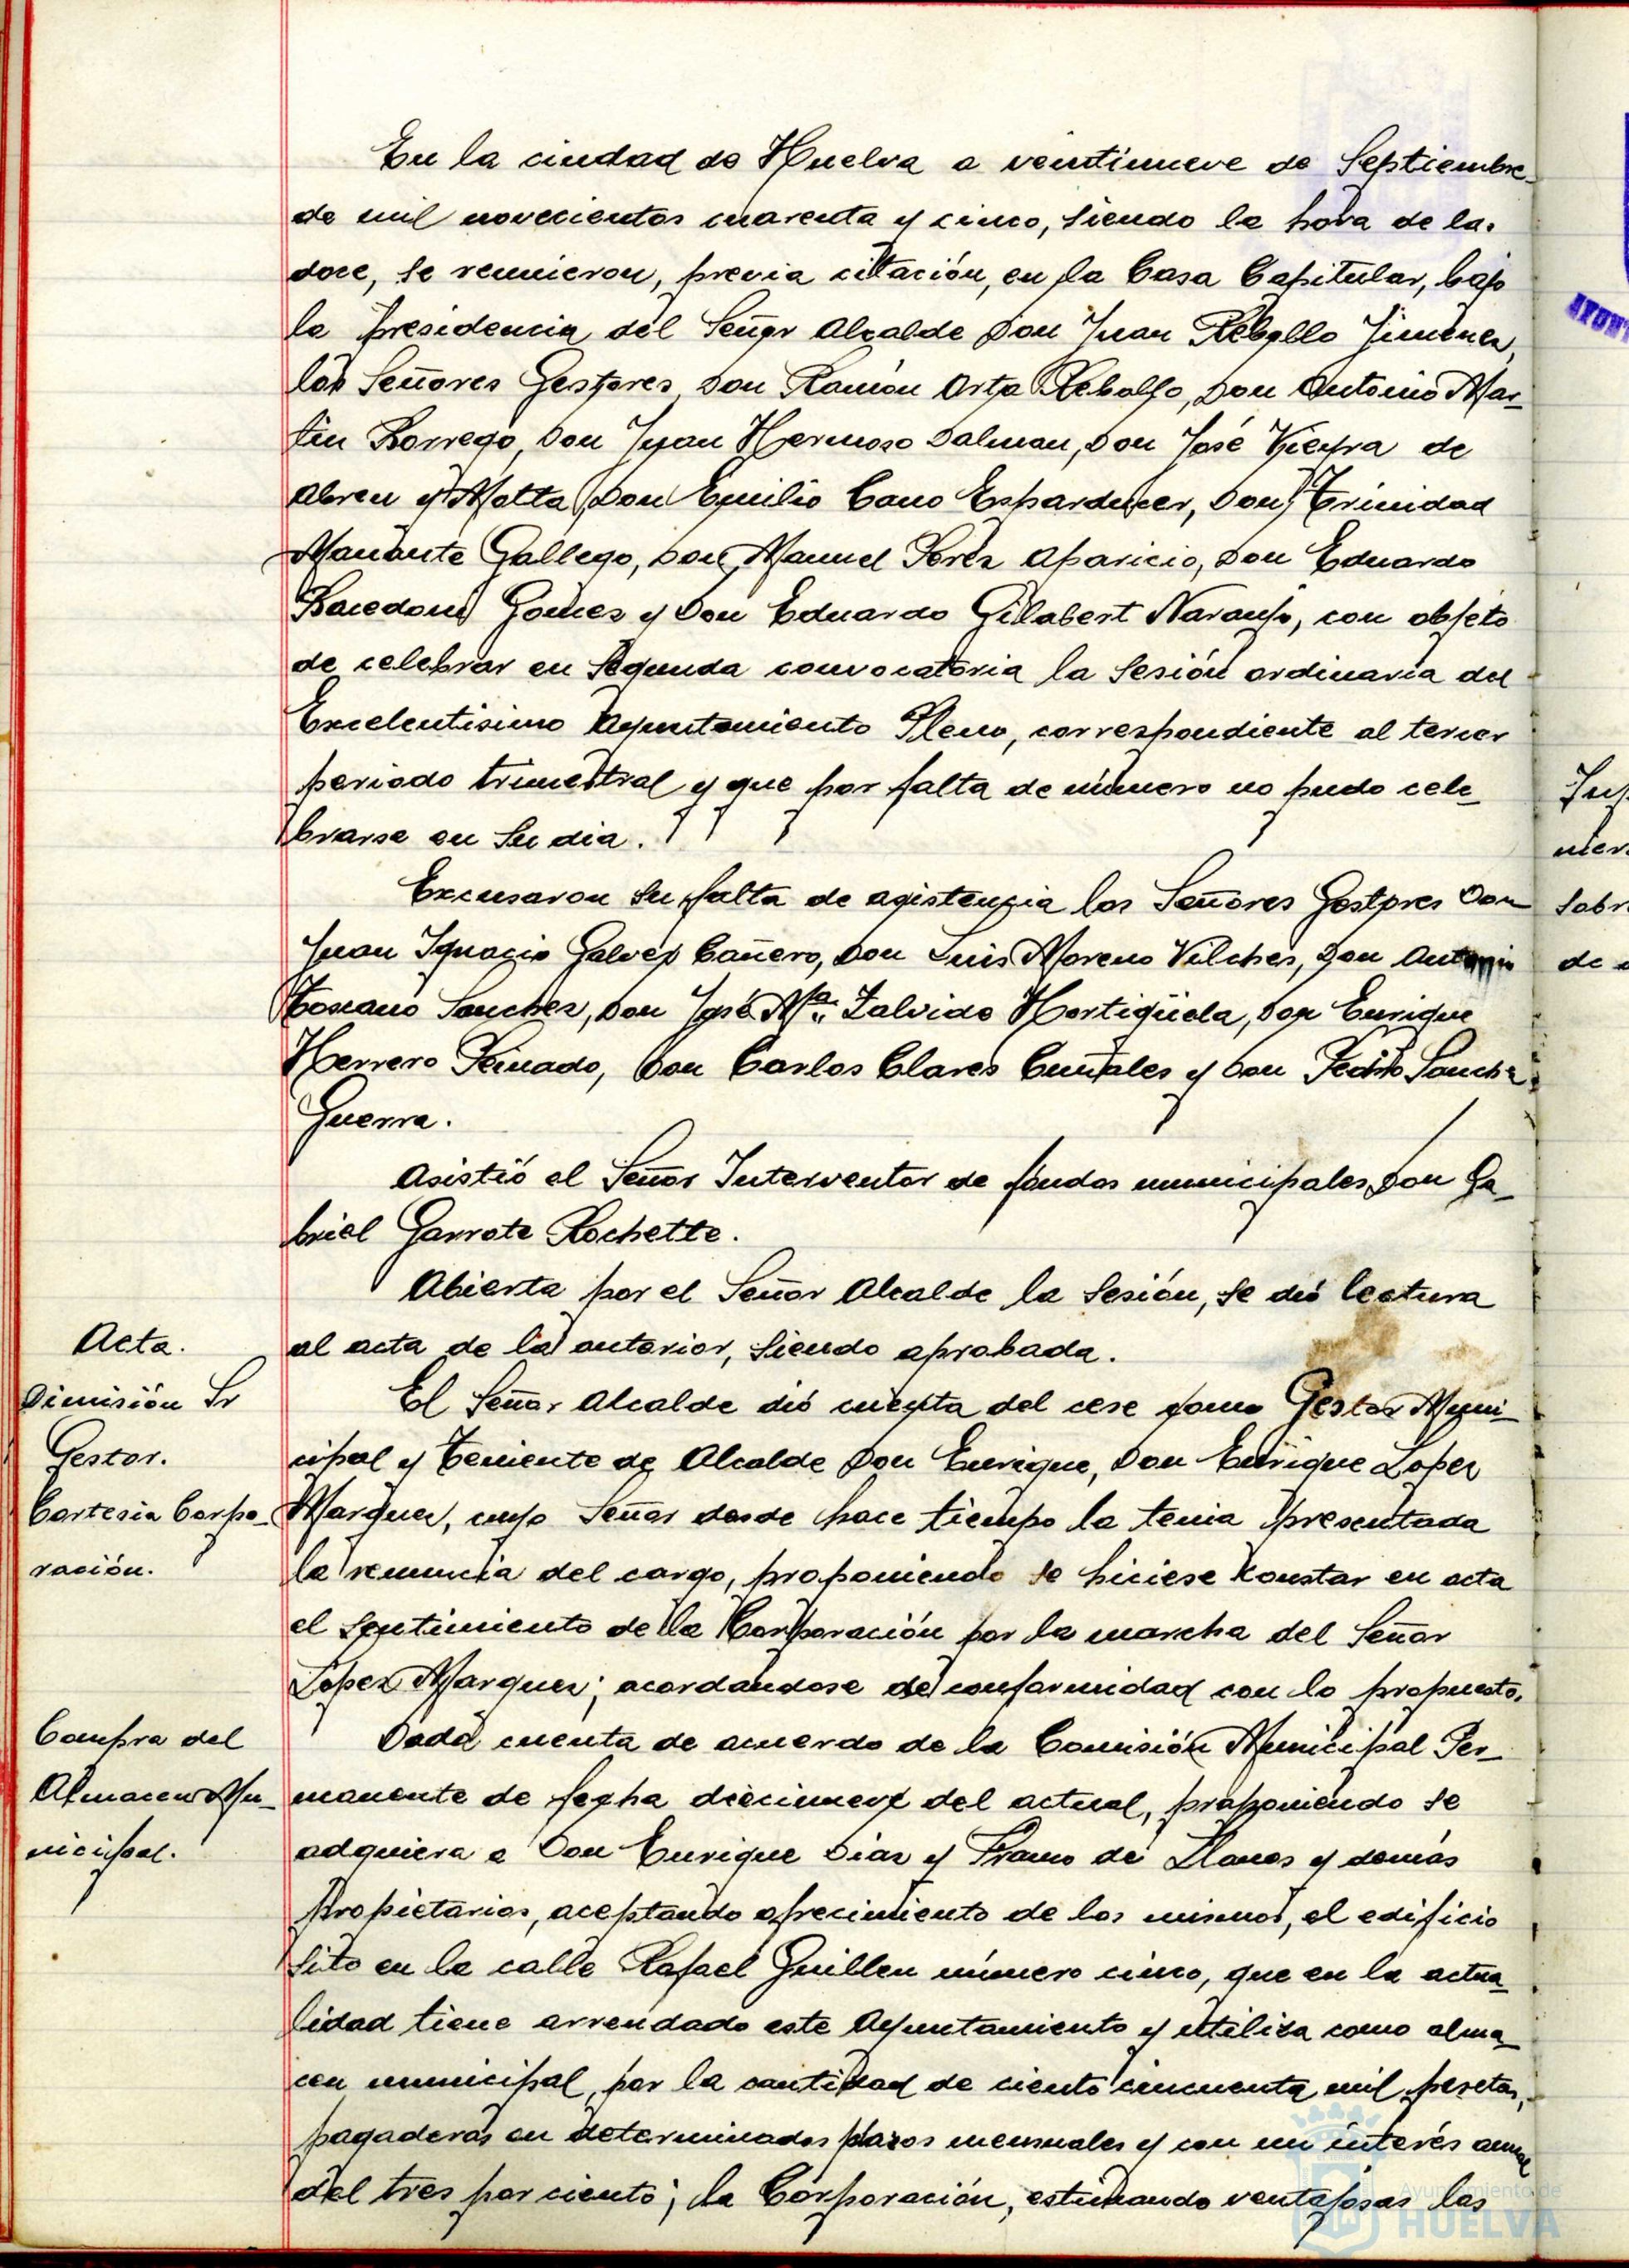 En la ciudad de Huelva a veintinueve de Septiembre
de mil novecientos cuarenta y cinco, siendo la hora de las
doce, se reunieron, previa citación, en la Casa Capitular, bajo
la presidencia del Señor Alcalde Don Juan Rebollo Jimenez,
los Señores Gestores Don Ramón Orta Rebollo, Don Antonio Mar-
tin Borrego, Don Juan Hermoso Dalman, Don José Vieyra de
Abreu y Motta, Don Emilio Cano Esparducer, Don Trinidad
Gallego, Don Manuel Perez Aparicio, Don Eduardo
Gomez y Don Eduardo Gilabert Naranjo, con objeto
de celebrar en segunda convocatoria la sesión ordinaria del
Excelentisimo Ayuntamiento Pleno, correspondiente al tercer
periodo trimestral y que por falta de número no pudo cele-
brarse en su dia.
Excusaron su falta de asistencia los Señores Gestores Don
Juan Ignacio Galvez Cañero, Don Luis Moreno Vilches, Don Antonio
Toscano Sanchez, Don José Mª Zalvide Hortigüela, Don Enrique
Herrero Peinado, Don Carlos Clares y Don Pedro Sanchez
Guerra.
Asistió el Señor Interventor de fondos municipales Don Ga-
briel Garrote Rochette.
Abierta por el Señor Alcalde la sesión, se dió lectura
Acta.
al acta de la anterior, siendo aprobada.
Dimisión Sr
Gestor.
Cortesia Corpo-
ración.
El Señor Alcalde dió cuenta del cese como Gestor Muni-
cipal y Teniente de Alcalde Don Enrique, Don Enrique Lopez
Marquez, cuyo Señor desde hace tiempo la tenia presentada
la renuncia del cargo, proponiendo se hiciese constar en acta
el sentimiento de la Corporación por la marcha del Señor
Lopez Marquez; acordandose de conformidad con lo propuesto.
Compra del
Almacen Mu-
nicipal.
Dada cuenta de acuerdo de la Comisión Municipal Per-
manente de fecha diecinueve del actual, proponiendo se
adquiera a Don Enrique Diaz y Franco de Llanos y demás
propietarios, aceptando ofrecimiento de los mismos, el edificio
sito en la calle Rafael Guillen número cinco, que en la actua-
lidad tiene arrendado este Ayuntamiento y utiliza como alma-
cen municipal, por la cantidad de ciento cincuenta mil pesetas,
pagaderas en determinados plazos mensuales y con un interés anual
del tres por ciento; la Corporación, estimando ventajosas las
Ayuntamiento de
HUELVA